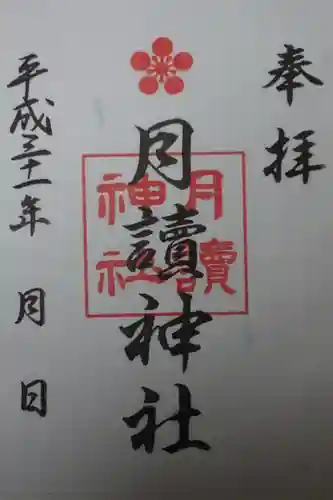 奉拝
月讀神社
月讀
神社
平成三十一年 月 日